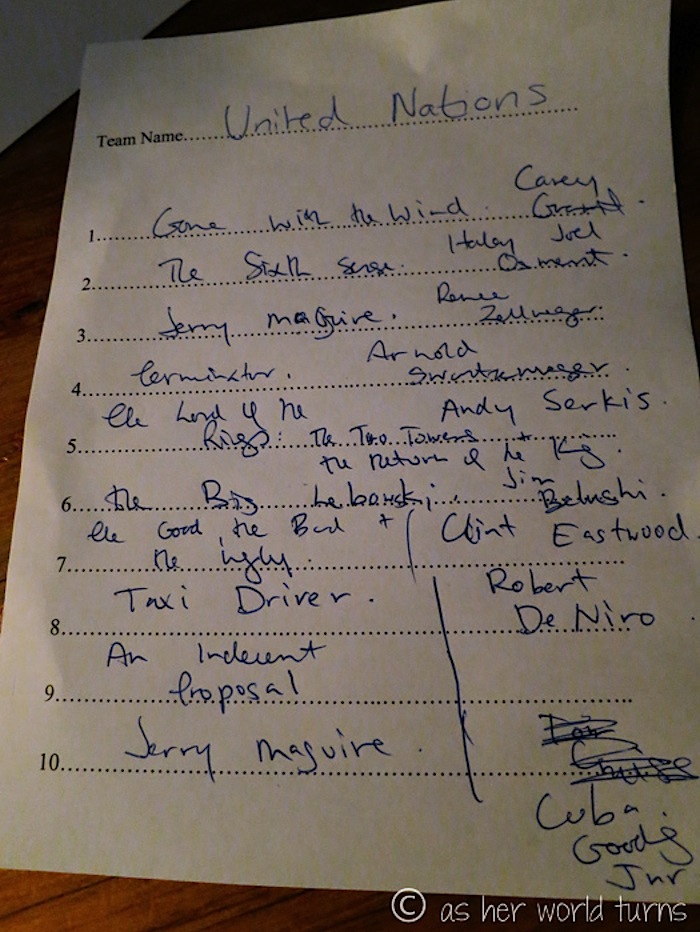 Team Name United Nations
Carey
1 Gone with the Wind. Grant.
Haley Joel
2 The Sixth Sense. Osment.
Renee
3 Jerry maGuire. Zellweger.
Arnold
4 Terminator.
the Lord of the Andy Serkis.
5 Rings: The Two Towers +
the Return of the King.
Jim
6 the Big Lebowski. Belushi.
the Good, the Bad + Clint Eastwood.
7 the Ugly.
Taxi Driver. Robert
8 De Niro
An Indecent
9 Proposal
10 Jerry maguire.
Cuba.
Goodg
Jnr
© as her world turns